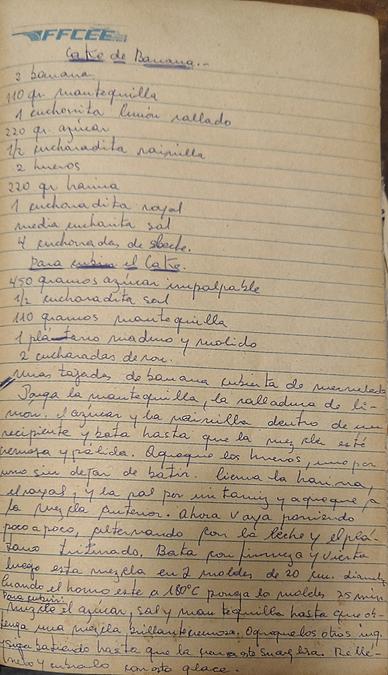 FFCCEE
Cake de Banana.-
2 banana
110 gr. mantequilla
1 cucharita limón rallado
220 gr. azúcar
1/2 cucharadita vainilla
2 huevos
220 gr harina
1 cucharadita royal
media cucharita sal
4 cucharadas de leche.
Para cubrir el Cake.
450 gramos azúcar impalpable
1/2 cucharadita sal
110 gramos mantequilla
1 plátano maduro y molido
2 cucharadas de ron.
unas tajadas de banana cubierta de mermelada
Ponga la mantequilla, la ralladura de li-
món. el azúcar y la vainilla dentro de un
recipiente y bata hasta que la mezcla esté
cremosa y pálida. Agregue los huevos, uno por
uno sin dejar de batir. Cierna la harina,
el royal, y la sal por un tamiz y agregue a
la mezcla anterior. Ahora vaya poniendo
poco a poco, alternando con la leche y el plá-
tano triturado. Bata con firmeza y vierta
luego esta mezcla en 2 moldes de 20 cm.
Cuando el horno este a 180°C ponga lo moldes 25 min.
Para cubrir:
mezcle el azúcar, sal y mantequilla hasta que ob-
tenga una mezcla brillante cremosa. Agregue los otros ing.
y siga batiendo hasta que la
y cubralo con este glace.